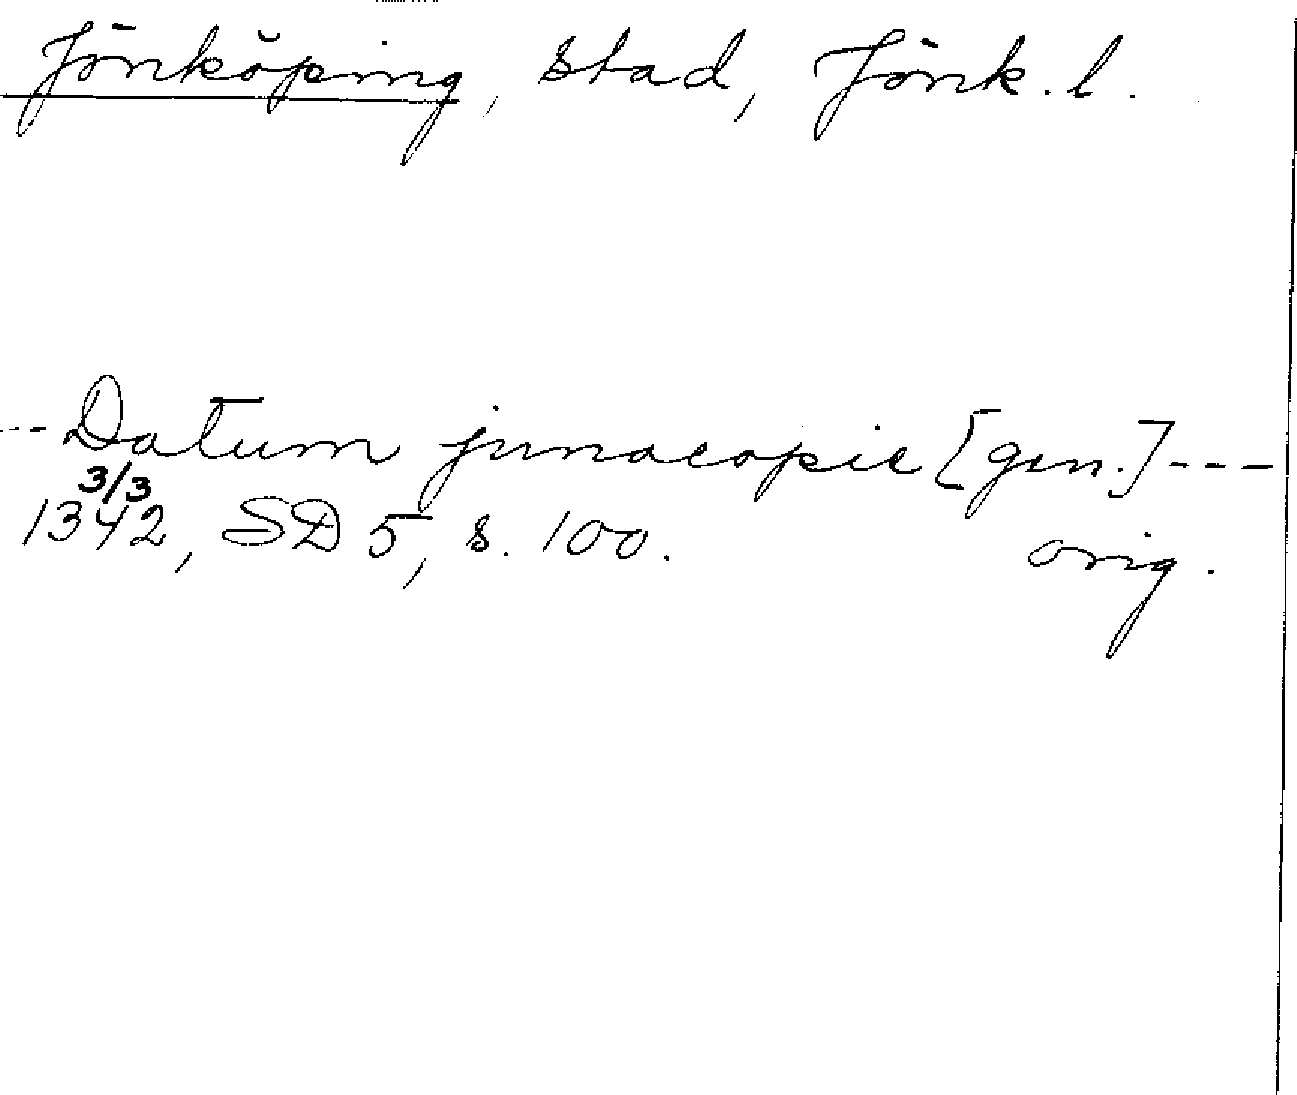 Jönköping, stad, Jönk. l.
--- Datum junacopie [gen.] ---
3/3
1342, SD 5, s. 100. orig.